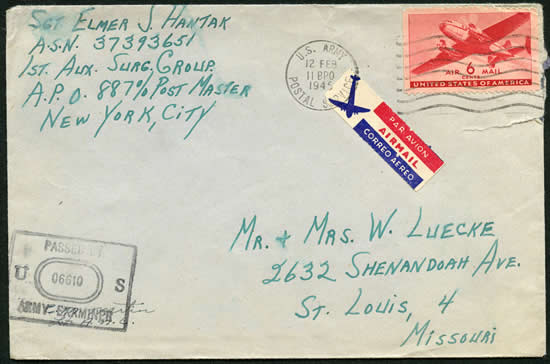 SGT ELMER J. HANTAK
A.S.N. 37393651
1ST. AUX. SURG. GROUP
A.P.O. 887 % POST MASTER
NEW YORK, CITY
U.S. ARMY
12 FEB
11 BPO
1945
POSTAL SERVICE
AIR 6 MAIL
CENTS
UNITED STATES OF AMERICA
PAR AVION
AIRMAIL
CORREO AEREO
MR. + MRS. W. LUECKE
2632 SHENANDOAH AVE.
ST. LOUIS, 4
MISSOURI
PASSED BY
U 06610 S
ARMY EXAMINER